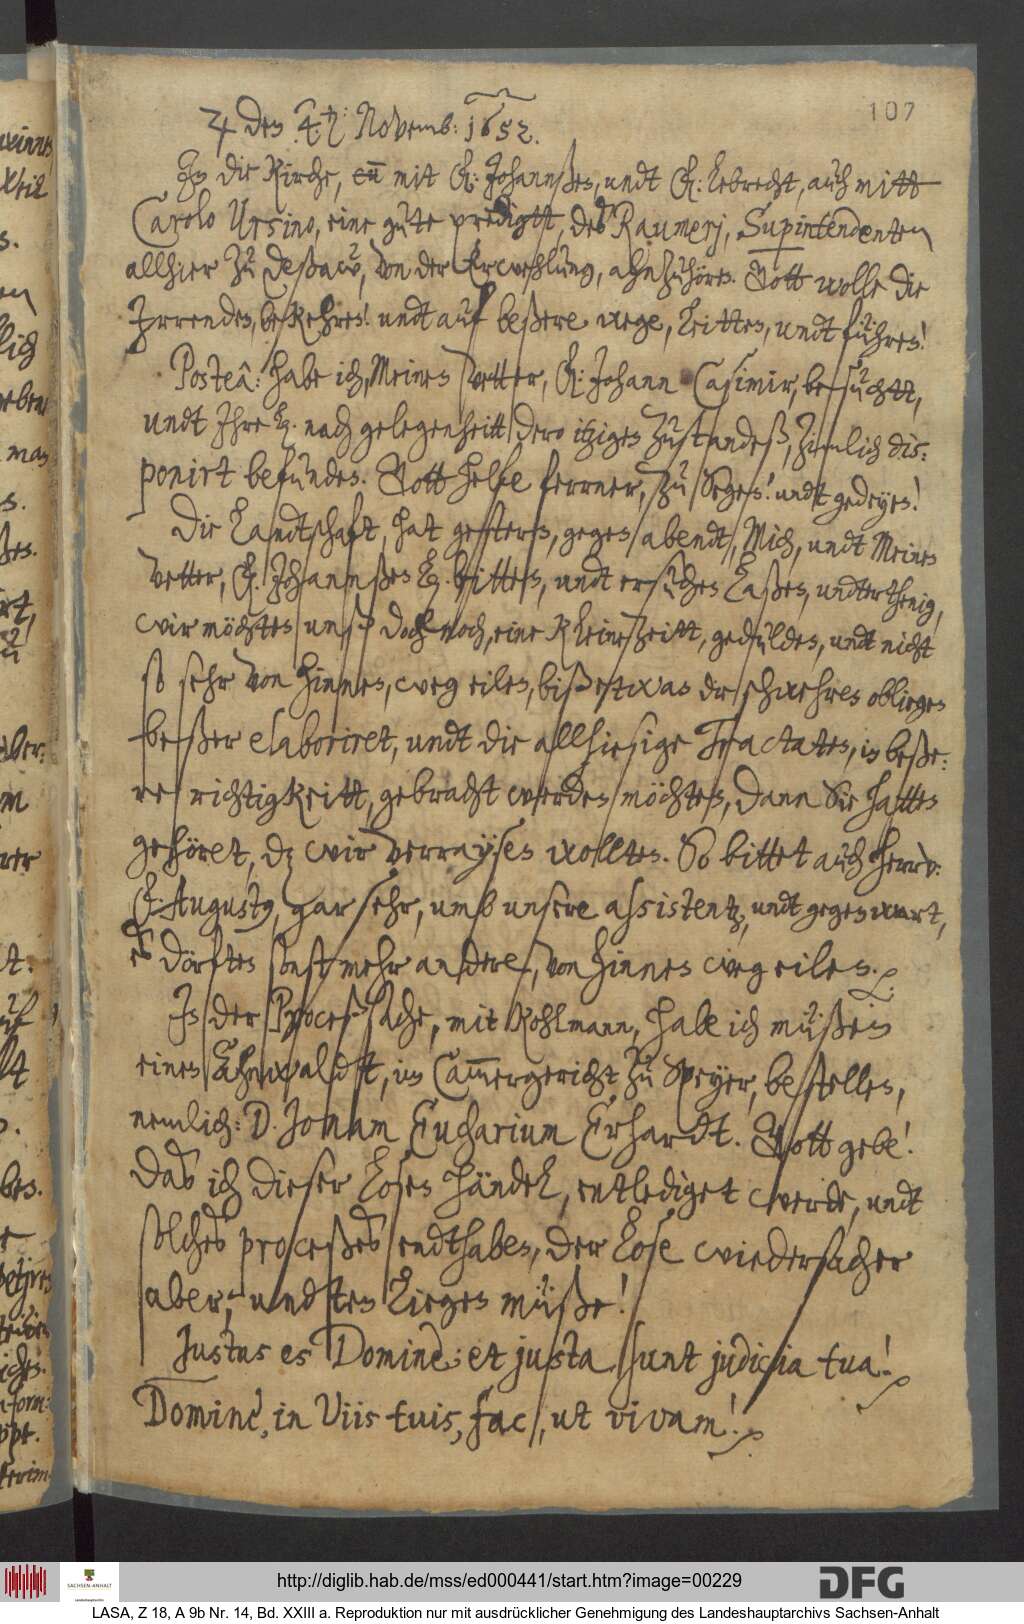 107
♃ den 4. 9. Novemb: 1652.
In die Kirche, mit F: Johannßen, undt F: Lebrecht, auch mitt
Carolo Ursino, eine gute predigtt, des Raumerj, Supintendenten
allhier zu Deßaw, von der Erwehlung, ahnzuhören. Gott wolle die
Irrenden, bekehren! undt auf beßere wege, leitten, undt führen!
Posteâ: habe ich, Meinen Vetter, F: Johann Casimir, besuchtt,
undt Ihre L. nach gelegenheitt dero itzigen zustandeß, zimlich dis:
ponirt befunden. Gott helfe ferrner, zu Segen! undt gedeyen!
Die Landtschaft, hat gestern, gegen abendt, Mich, undt Meinen
Vetter, F. Johannßen L. bitten, undt ersuchen laßen, undterthenig,
wir möchten unß doch noch, eine kleine zeitt, gedulden, undt nicht
so sehr von hinnen, weg eilen, biß etwas dr schwehren obliegen
beßer elaboriret, undt die allhiesige Tractaten, in beße:
re richtigkeitt, gebracht werden möchten, dann Sie hatten
gehöret, dz wir verraysen wollten. So bittet auch Herrv:
F: Augusty, gar sehr, umb unsere assistentz, undt gegenwart,
es dörften sonst mehr andere, von hinnen weg eilen.
In der Proceß sache, mit Kohlmann, habe ich müßen
einen Ahnwaldtt, im Cam̄ergericht zu Speyer, bestellen,
nemlich: D. Jonam Eucharium Erhardt. Gott gebe!
das ich dieser losen händel, entlediget werde, undt
solches proceßes endthaben, der lose wiedersacher
aber, undten liegen müße!
Justus es Domine; et justa sunt judicia tua!
Domine, in Viis tuis, fac, ut vivam!
http://diglib.hab.de/mss/ed000441/start.htm?image=00229
SACHSEN-ANHALT
DFG
LASA, Z 18, A 9b Nr. 14, Bd. XXIII a. Reproduktion nur mit ausdrücklicher Genehmigung des Landeshauptarchivs Sachsen-Anhalt